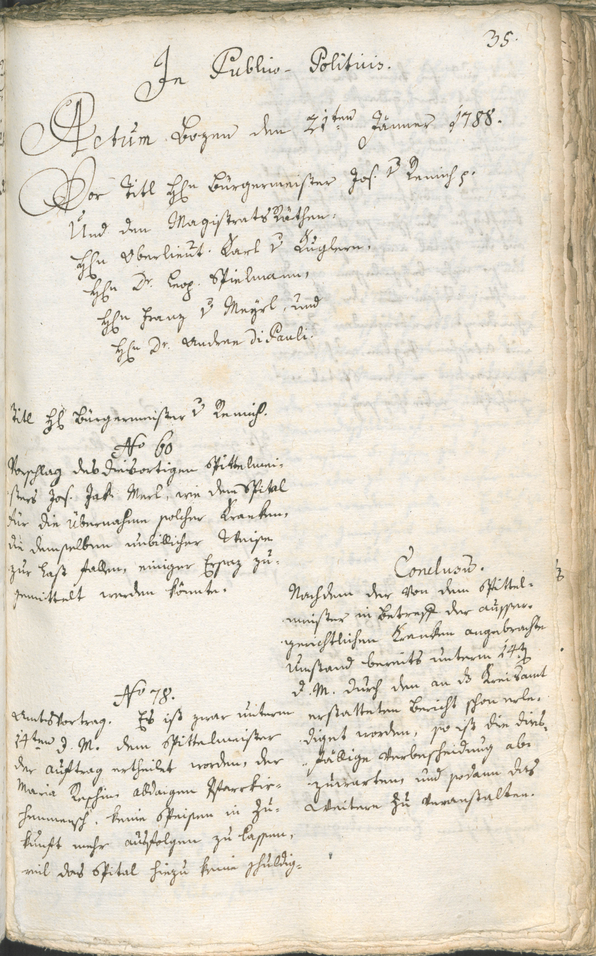 35.
In Publico-Politicis.
Actum Bozen den 21ten Jänner 1788.
Vor Titl Hrn Bürgermeister Jos. v Remich p.
Und den Magistrats Räthen.
Hrn Oberlieut. Karl v Kuglern,
Hrn Dr. Leop. Spielmann,
Hrn Franz v Meyrl, und
Hrn Dr. Andreæ Di Pauli.
Titl Hr Bürgermeister v Remich.
No 60
Vorschlag des diesortigen Spittelmei-
sters Jos. Jak. Merl, wie dem Spital
für die Übernahm solcher Kranken,
die demselben unbillicher Weise
zur Last fallen, einiger Ersaz zu-
gemittelt werden könnte.
Conclusum.
Nachdem der von dem Spittel-
meister in Betreff der ausser-
gerichtlichen Kranken angebrachte
Umstand bereits unterm 14t
d. M. durch den an das Kreisamt
erstatteten Bericht schon erle-
diget worden, so ist die dies-
fällige Verbescheidung ab-
zuwarten, und sodann das
Weitere zu veranstalten.
No 78.
Amtsvortrag. Es ist zwar unterm
14ten d. M. dem Spittelmeister
der Auftrag ertheilet worden, der
Maria Resch, alldaigen Pfarrkir-
chenmensch, keine Speisen in Zu-
kunft mehr ausfolgen zu lassen,
weil das Spital hiezu keine Schuldig-